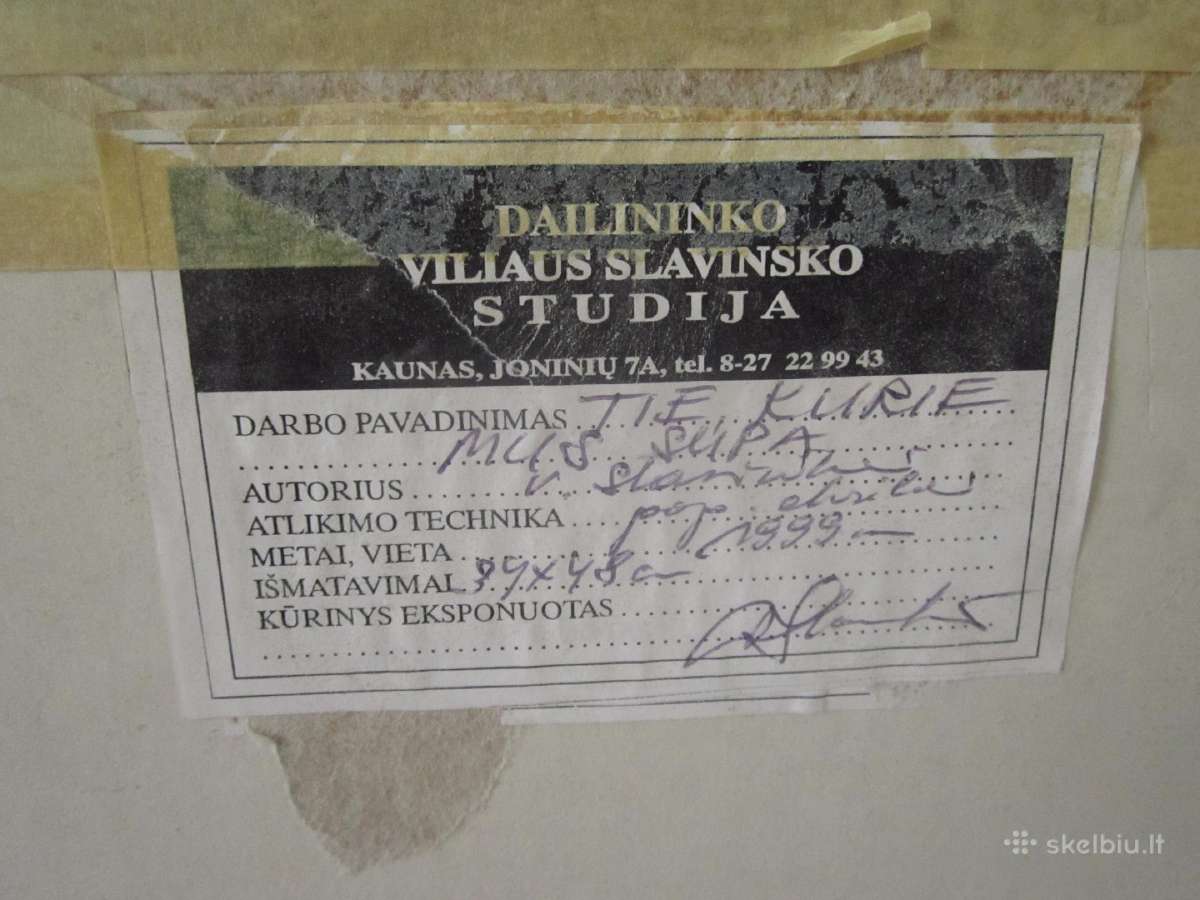 DAILININKO
VILIAUS SLAVINSKO
STUDIJA
KAUNAS, JONINIŲ 7A, tel. 8-27 22 99 43
DARBO PAVADINIMAS TIE, KURIE
MUS SUPA
AUTORIUS V. Slavinskas
ATLIKIMO TECHNIKA pop.
METAI, VIETA 1999
IŠMATAVIMAI 34x48
KŪRINYS EKSPONUOTAS
skelbiu.lt